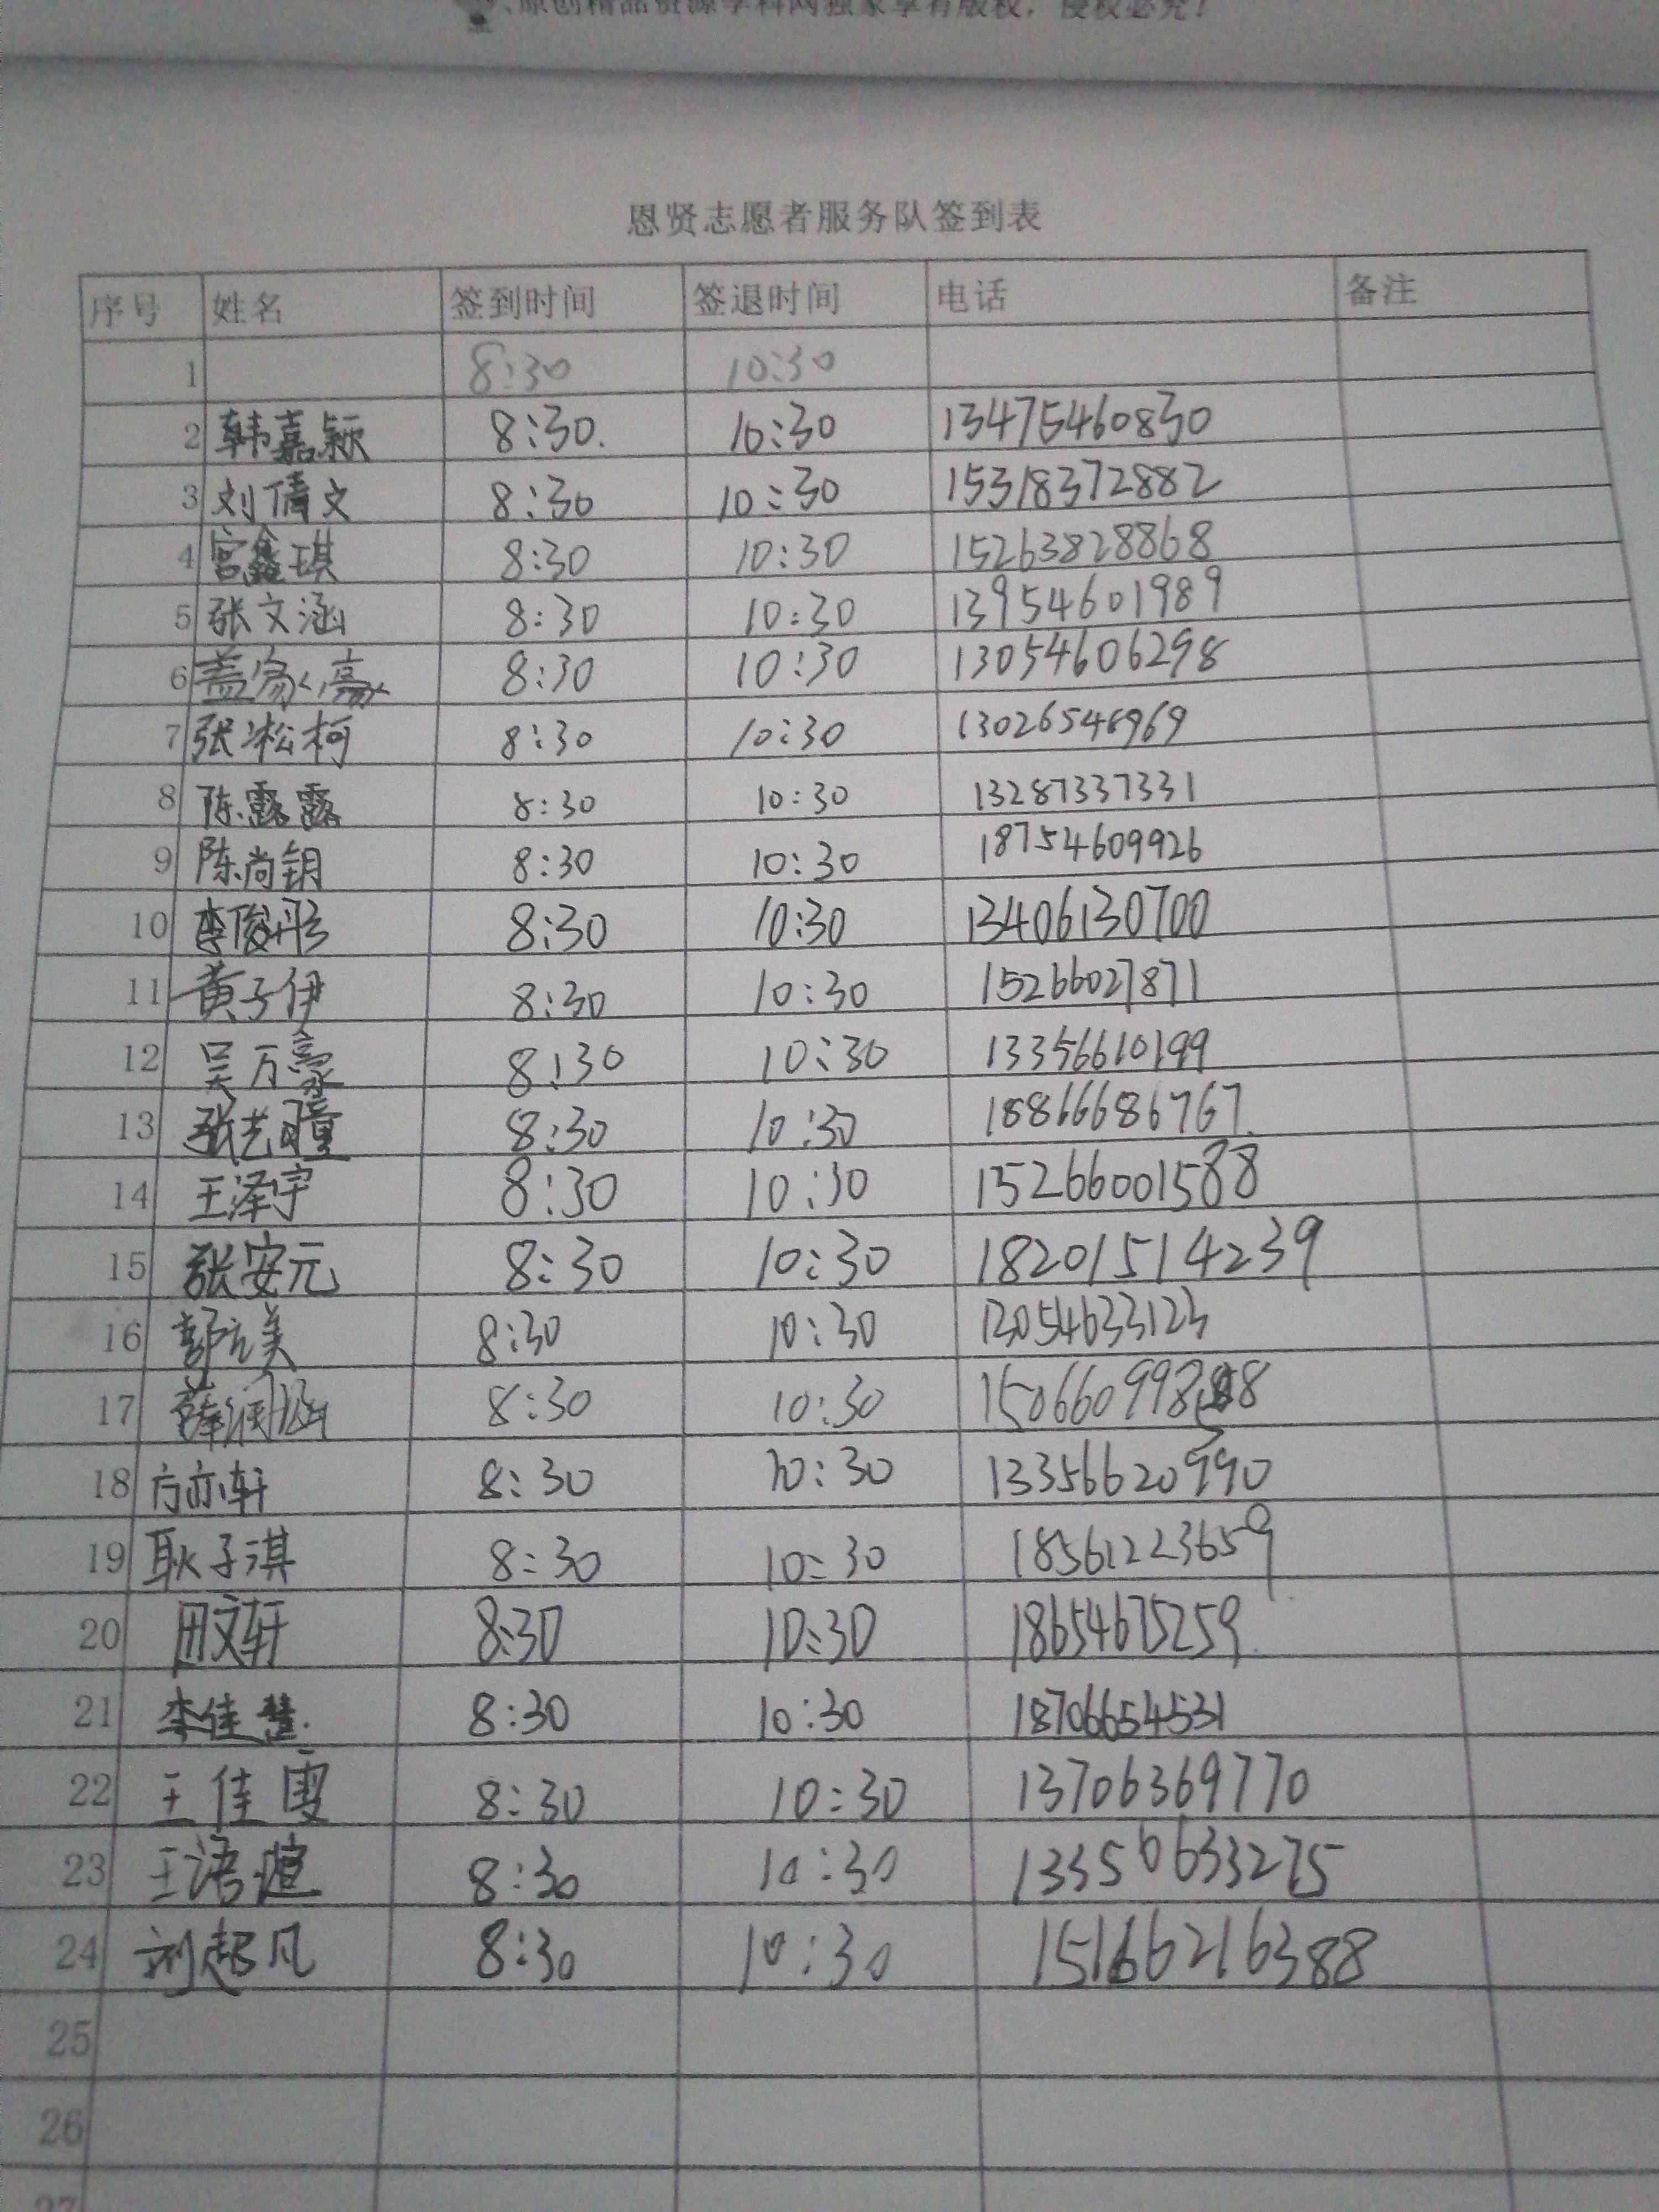 、原创精品资源学科网独家享有版权，侵权必究！
恩贤志愿者服务队签到表
序号 姓名 签到时间 签退时间 电话 备注
1 8:30 10:30
2 韩嘉颖 8:30. 10:30 13475460830
3 刘倩文 8:30 10:30 15318372882
4 宫鑫琪 8:30 10:30 15263828868
5 张文涵 8:30 10:30 13954601989
6 盖家豪 8:30 10:30 13054606298
7 张凇柯 8:30 10:30 13026548969
8 陈露露 8:30 10:30 13287337331
9 陈尚钥 8:30 10:30 18754609926
10 李俊彤 8:30 10:30 13406130700
11 黄子伊 8:30 10:30 15266027871
12 吴万豪 8:30 10:30 13356610199
13 张艺瞳 8:30 10:30 18866686767.
14 王泽宇 8:30 10:30 15266001588
15 张安元 8:30 10:30 18201514239
16 8:30 10:30 13054633123
17 薛润涵 8:30 10:30
18 方亦轩 8:30 10:30 13356620990
19 耿子淇 8:30 10:30 18561223659
20 田文轩 8:30 10:30 18654675259.
21 李佳慧. 8:30 10:30 18706654531
22 王佳雯 8:30 10:30 13706369770
23 王语煊 8:30 10:30 13350633275
24 刘起凡 8:30 10:30 15166216388
25
26
27